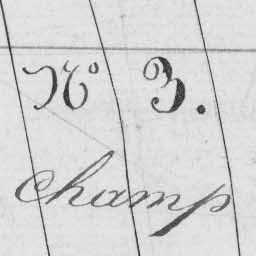 N° 3.
champ